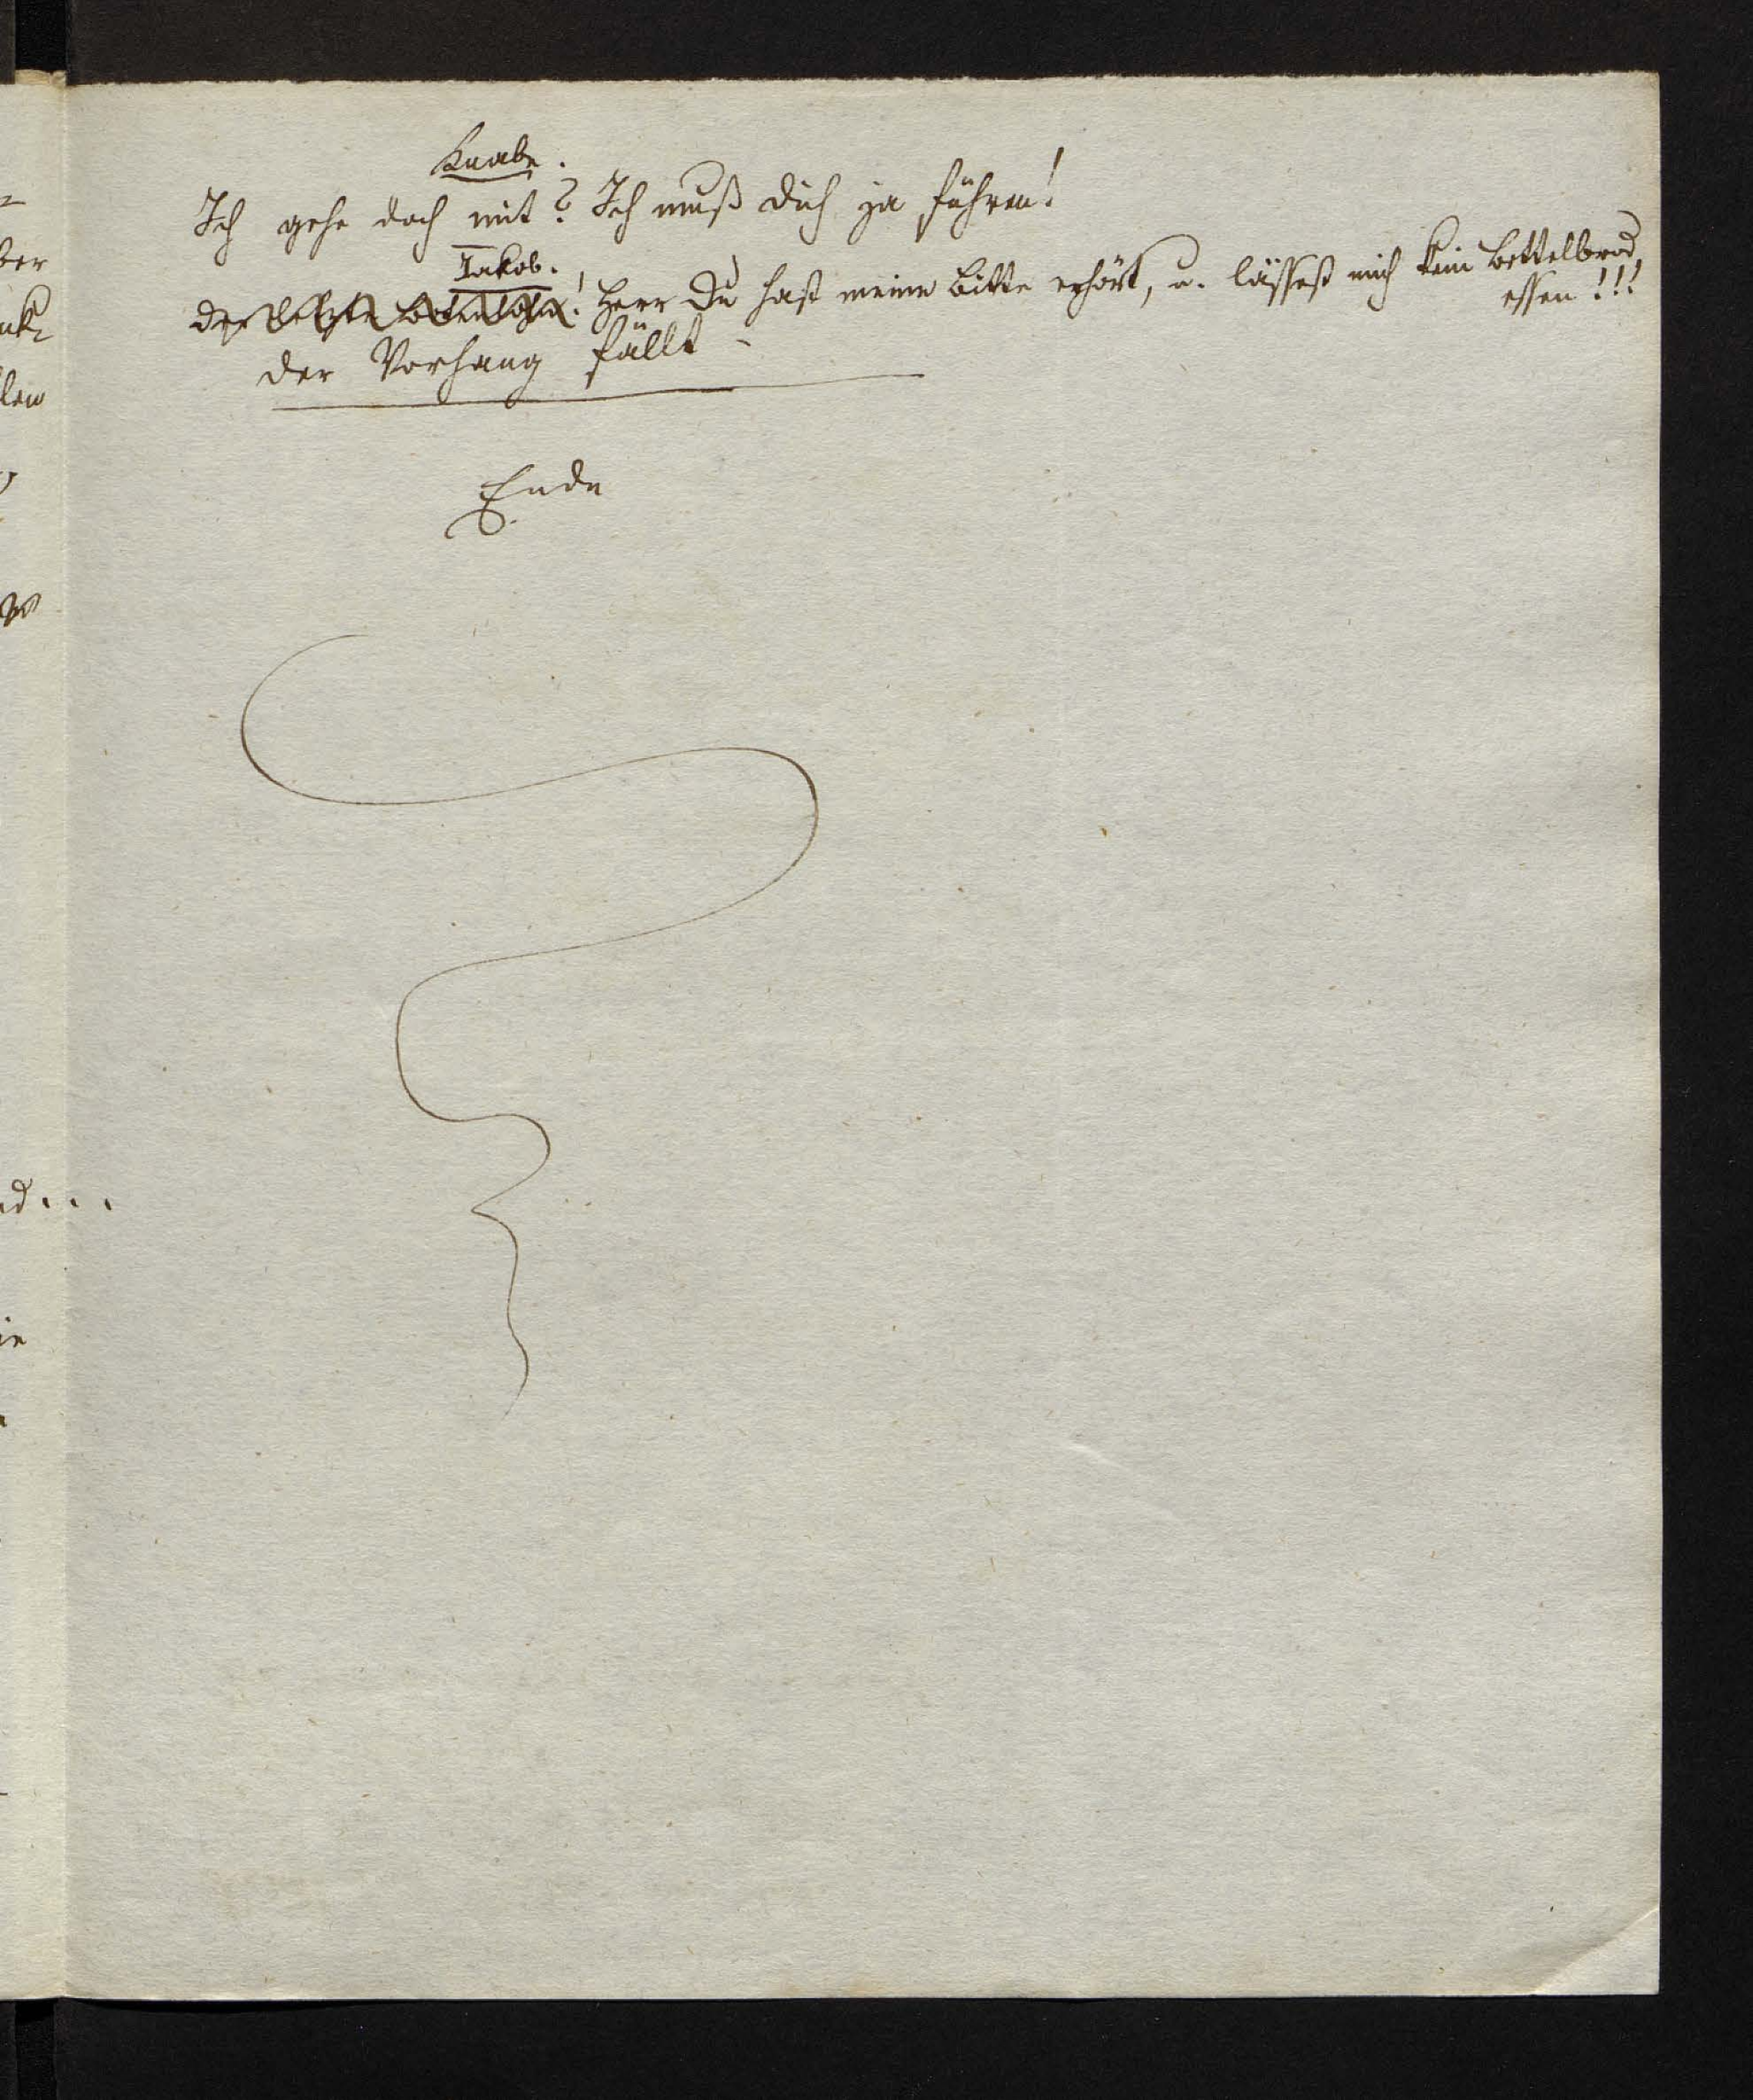 Knabe.
Ich gehe doch mit? Ich muß dich ja führen!
Jakob.
Der letzte Botenlohn! Herr Du hast meine Bitte erhört, u. lässest mich kein Bettelbrod
essen!!!
der Vorhang fällt -
Ende